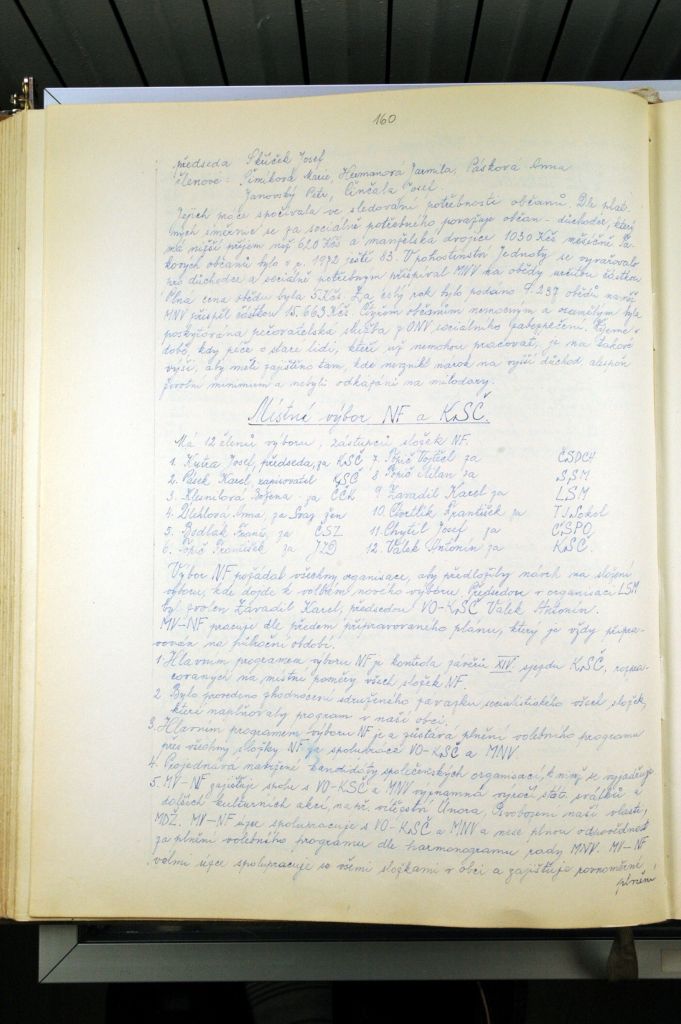 160
předseda Skůček Josef
členové: Šimíková Marie, Heřmanová Jarmila, Pásková Anna
Janovský Petr, Činčala Josef.
Jejich práce spočívala ve sledování potřebnosti občanů. Dle plat-
ných směrnic se za sociálně potřebného považuje občan-důchodce, který
má nižší příjem než 620 Kčs a manželská dvojice 1030 Kčs měsíčně. Ta-
kových občanů bylo v r. 1972 ještě 83. V pohostinství Jednoty se vyvařovalo
pro důchodce a sociálně potřebným přispíval MNV na obědy určitou částkou
Plná cena obědu byla 5 Kčs. Za celý rok bylo podáno 4.237 obědů na něž
MNV přispěl částkou 15.663 Kčs. občanům nemocným a osamělým byla
poskytována pečovatelská služba z ONV sociálního zabezpečení. Žijeme v
době, kdy péče o staré lidi, kteří už nemohou pracovat, je na takové
výši, aby měli zajištěno tam, kde nevznikl nárok na vyšší důchod, alespoň
životní minimum a nebyli odkázáni na milodary.
Místní výbor NF a KSČ.
Má 12 členů výboru, zástupců složek NF.
1. Kutra Josef, předseda, za KSČ 7. Popič Vojtěch za ČSDCH
2. Pásek Karel, zapisovatel KSČ 8. Popič Milan za SSM
3. Božena za ČČK 9. Zavadil Karel za LSM
4. Anna, za Svaz žen 10. Čtvrtlík František za TJ. Sokol
5. Bedlak Franc, za ČSZ 11. Chytil Josef za ČSPO
6. Popič František za JZD 12. Válek Antonín za KSČ.
Výbor NF požádal všechny organisace, aby předložily návrh na složení
výboru, kde dojde k volbám nového výboru. Předsedou v organisaci LSM
byl zvolen Zavadil Karel, předsedou VO-KSČ Válek Antonín.
MV-NF pracuje dle předem připravovaného plánu, který je vždy vypra-
cován na půlroční období.
1. Hlavním programem výboru NF je kontrola závěrů XIV. sjezdu KSČ, rozpra-
covaných na místní poměry všech složek NF.
2. Bylo provedeno zhodnocení sdruženého závazku socialistického všech složek,
které naplňovaly program v naší obci.
3. Hlavním programem výboru NF je a zůstává plnění volebního programu
přes všechny složky NF za spolupráce VO-KSČ a MNV.
4. Projednává navržené kandidáty společenských organisací, k nimž se vyjadřuje
5. MV-NF zajišťuje spolu s VO-KSČ a MNV významná výročí, stát. svátků a
dalších kulturních akcí, na př. vítězství Února, Osvobození naší vlasti,
MDŽ. MV-NF úzce spolupracuje s VO-KSČ a MNV a nese plnou odpovědnost
za plnění volebního programu dle harmonogramu rady MNV. MV-NF
velmi úzce spolupracuje se všemi složkami v obci a zajišťuje rovnoměrné
plnění